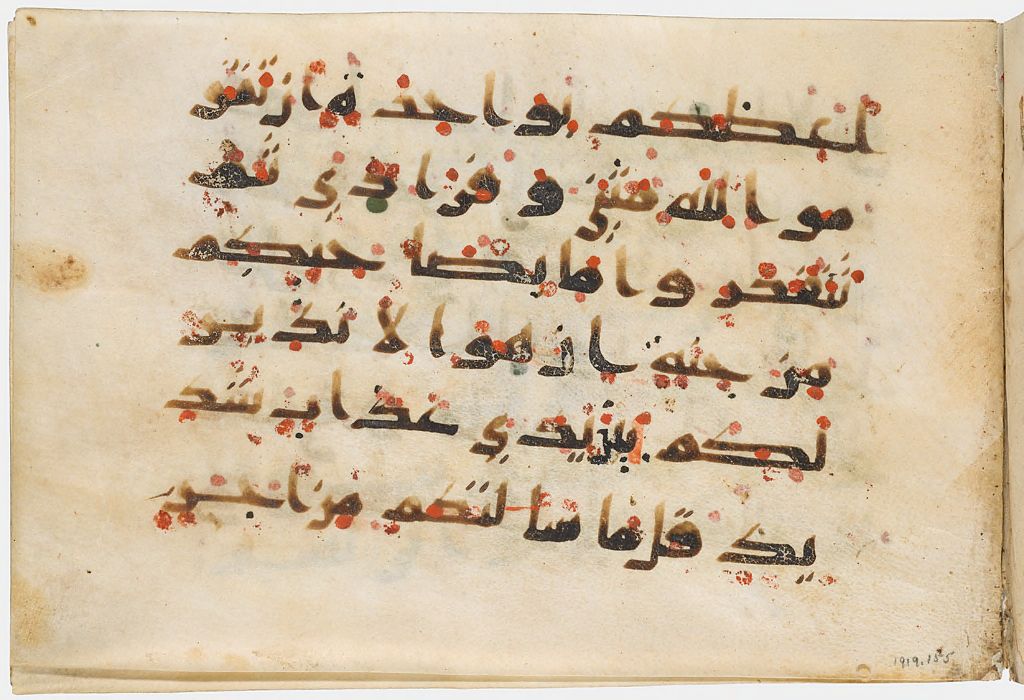 اعظكم بواحدة ان تقو
موا لله مثنى و فرادي ثم
تتفكروا ما بصاحبكم
من جنة ان هو الا نذير
لكم بين يدي عذاب شد
يد قل ما سا لتكم من اجر
1919.155